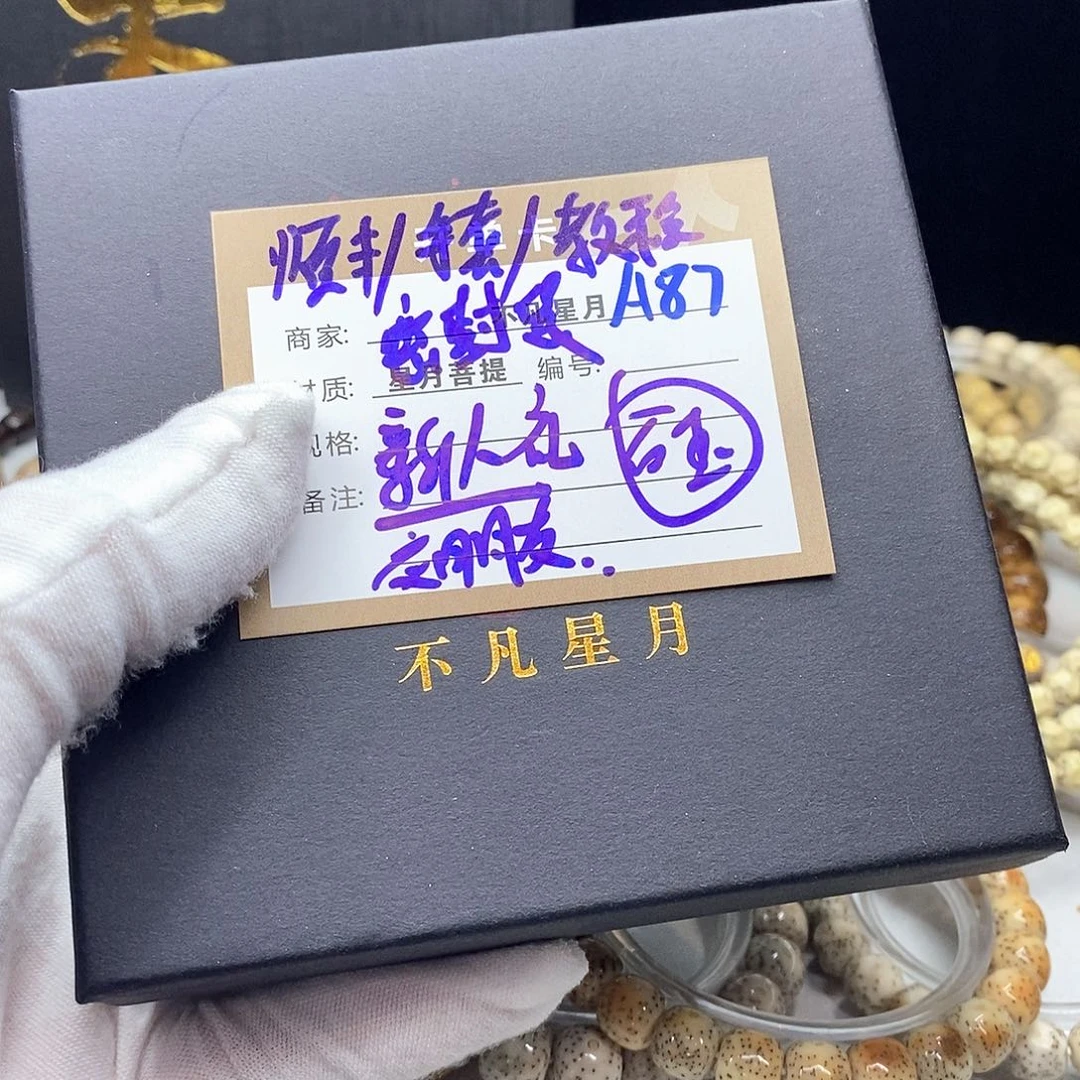 顺丰/手套/教程
A87
商家: 不凡星月
密封袋
材质: 星月菩提 编号:
规格:
新人礼
备注:
交朋友..
不凡星月